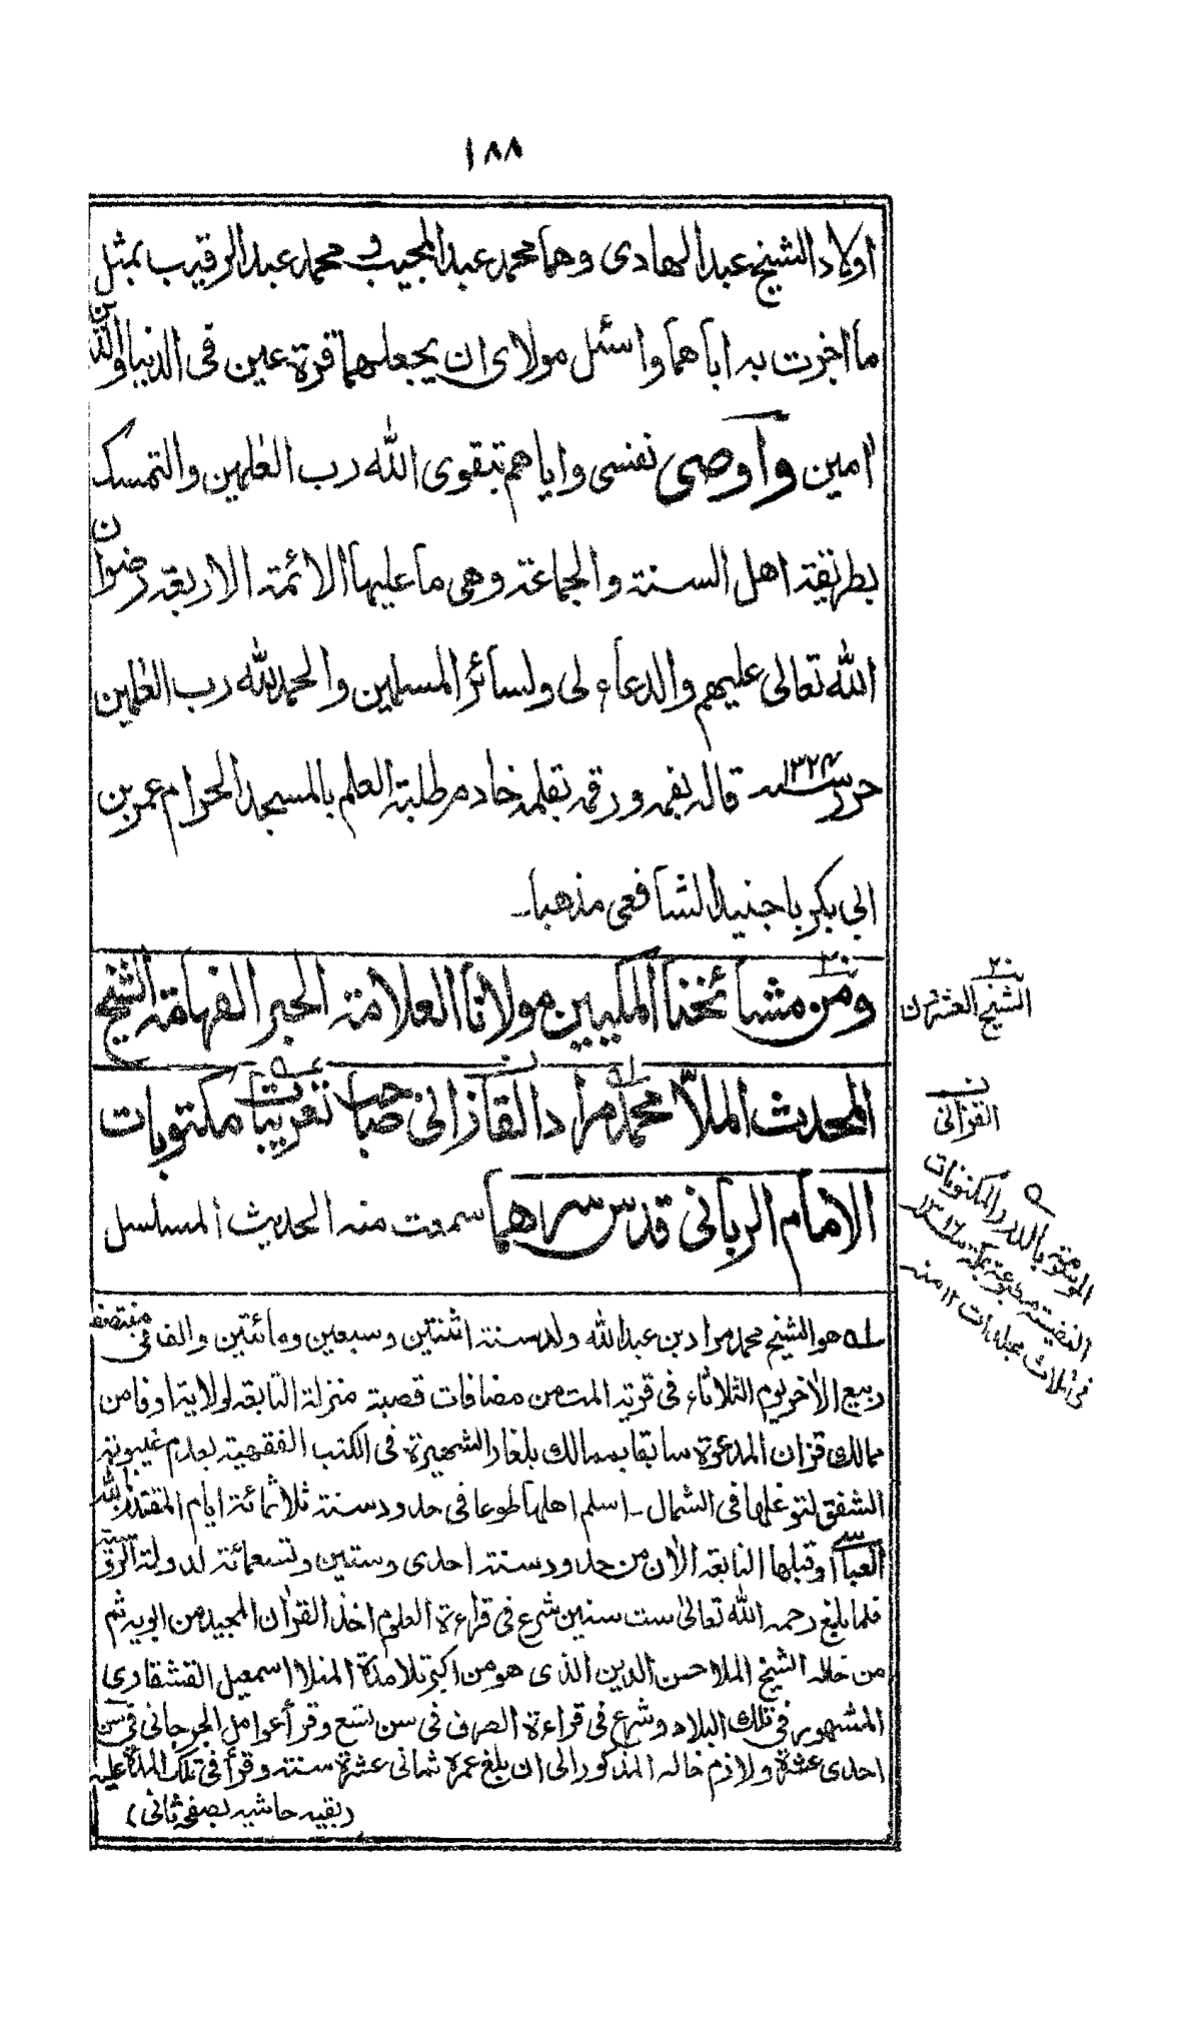 ١٨٨
اولاد الشيخ عبد الهادى وهما محمد عبد المجيب و محمد عبد الرقيب بمثل
ما اخرت به اباهما واسئل مولاى ان يجعلهما قرة عين فى الدنيا والدين
امين وأوصى نفسى واياهم بتقوى الله رب العلمين والتمسك
بطريقة اهل السنة والجماعة وهى ما عليها الائمة الاربعة رضوان
الله تعالى عليهم والدعاء لى ولسائر المسلمين والحمد لله رب العلمين
حرر سنة ١٣٢٤ قاله بفمه ورقمه بقلمه خادم طلبة العلم بالمسجد الحرام عمر بن
ابى بكر باجنيد الشافعى مذهبا۔
ومن مشائخنا المكيين مولانا العلامة الحبر الفهامة الشيخ
المحدث الملا محمد مراد القازانى صاحب تعريبات مكتوبات
الامام الربانى قدس سرهما سمعت منه الحديث المسلسل
٢٠
الشيخ العشرون
ن
القزانى
الموسومة بالدرر المكنونات
النفيسة مطبوعة بمكة سنة ١٣١٦
فى ثلاث مجلدات ١٢ منه
له هو الشيخ محمد مراد بن عبد الله ولد سنة اثنتين وسبعين ومائتين والف فى منتصف
ربيع الاٰخر يوم الثلاثاء فى قرية المت من مضافات قصبة منزلة التابعة لولاية اوفا من
ممالك قزان المدعوة سابقا بممالك بلغار الشهيرة فى الكتب الفقهية بعدم غيبوبة
الشفق لتوغلها فى الشمال۔ اسلم اهلها طوعا فى حدود سنة ثلاثمائة ايام المقتدر بالله
العباسى او قبلها التابعة الاٰن من حدود سنة احدى وستين وتسعمائة لدولة الروسية
فلما بلغ رحمه الله تعالىٰ ست سنين شرع فى قراءة العلوم اخذ القراٰن المجيد من ابويه ثم
من خاله الشيخ الملا حسن الدين الذى هو من اكبر تلامذة المنلا اسمعيل القشقارى
المشهور فى تلك البلاد وشرع فى قراءة الصرف فى سن تسع وقرأ عوامل الجرجانى فى سن
احدى عشرة ولازم خاله المذكور الى ان بلغ عمره ثمانى عشرة سنة وقرأ فى تلك المدة عليه
(بقيه حاشيه بصفحه ثانى)